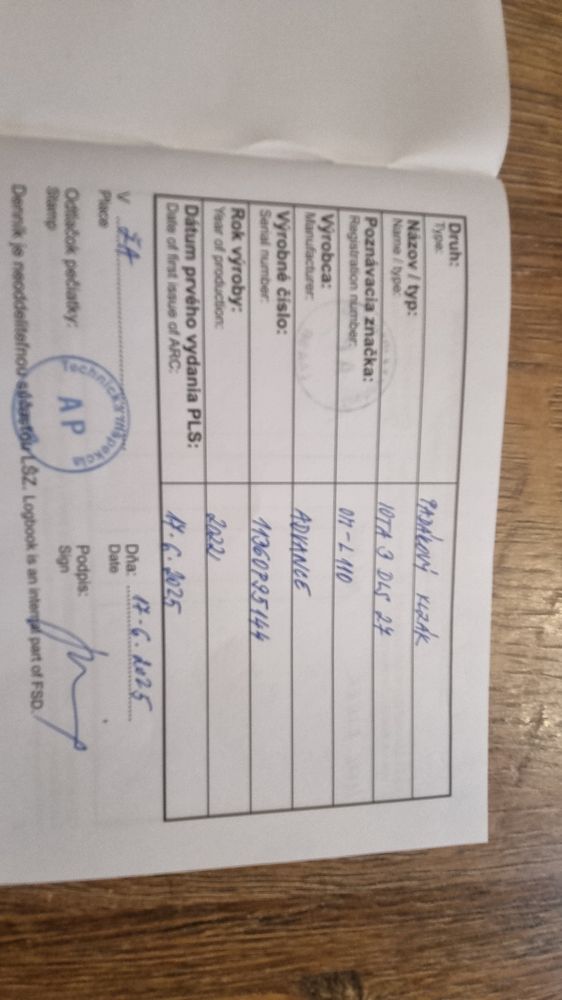 Druh: PADÁKOVÝ KLZÁK
Type:
Názov / typ: IOTA 3 DLS 27
Name / type:
Poznávacia značka: OM-L110
Registration number:
Výrobca: ADVANCE
Manufacturer:
Výrobné číslo: 11360795144
Serial number:
Rok výroby: 2022
Year of production:
Dátum prvého vydania PLS: 17.6.2025
Date of first issue of ARC:
V ŽA Dňa: 17.6.2025
Place Date
Odtlačok pečiatky: Podpis:
Stamp Sign
AP
Denník je neoddeliteľnou súčasťou LŠZ. Logbook is an integral part of FSD.